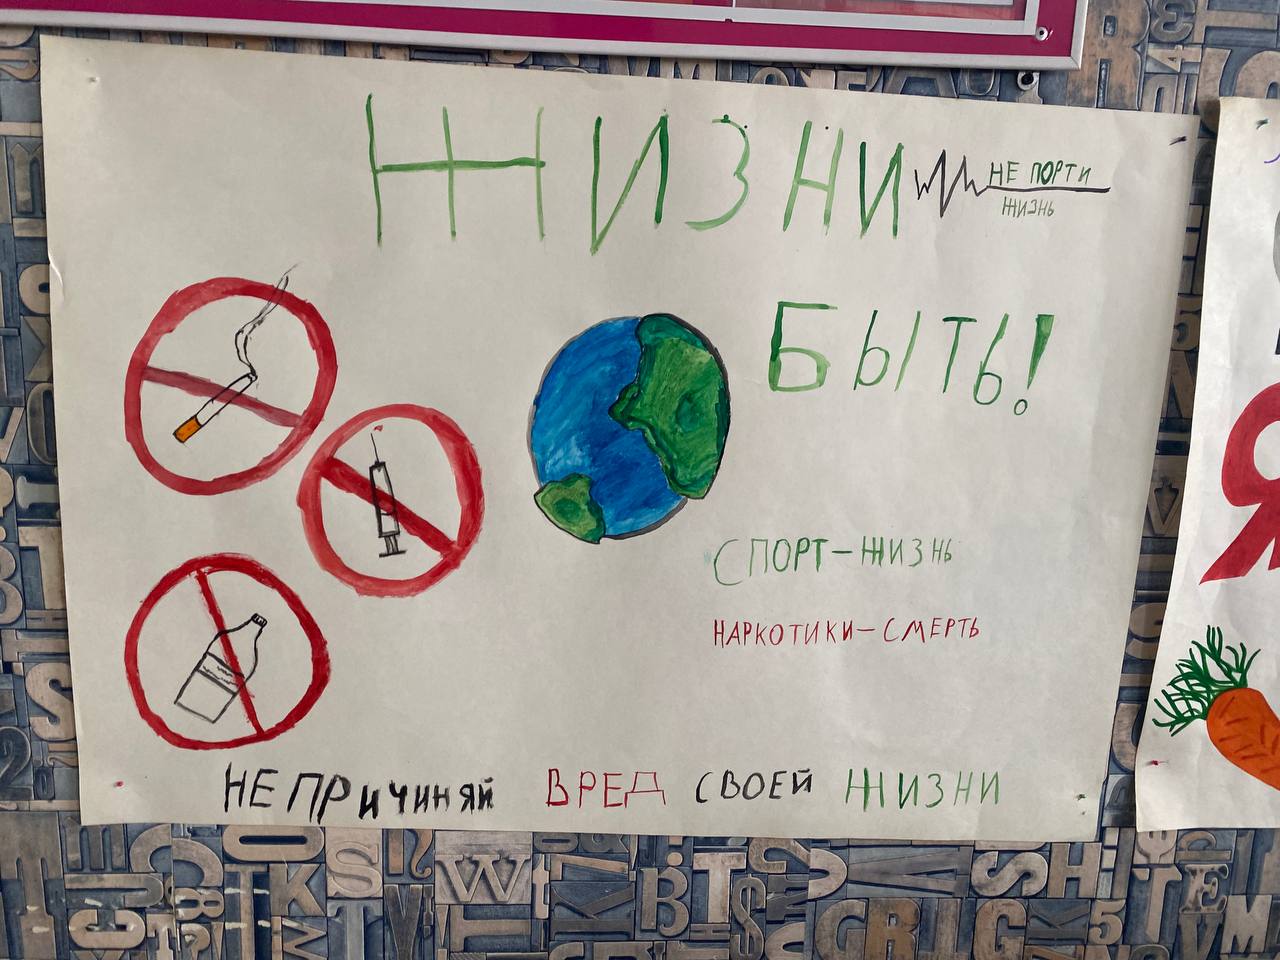 ЖИЗНИ
НЕ ПОРТИ
ЖИЗНЬ
БЫТЬ!
СПОРТ-ЖИЗНЬ
НАРКОТИКИ-СМЕРТЬ
НЕ ПРИЧИНЯЙ ВРЕД СВОЕЙ ЖИЗНИ
Я